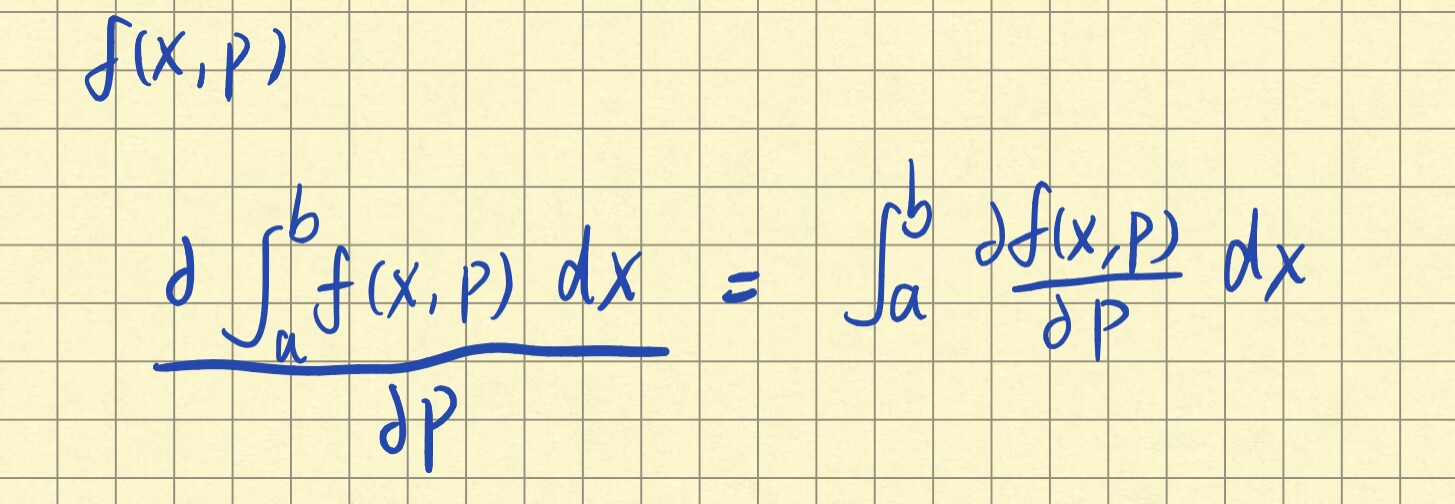 f(x,p)
∂∫_a^b f(x,p) dx / ∂p = ∫_a^b ∂f(x,p)/∂p dx